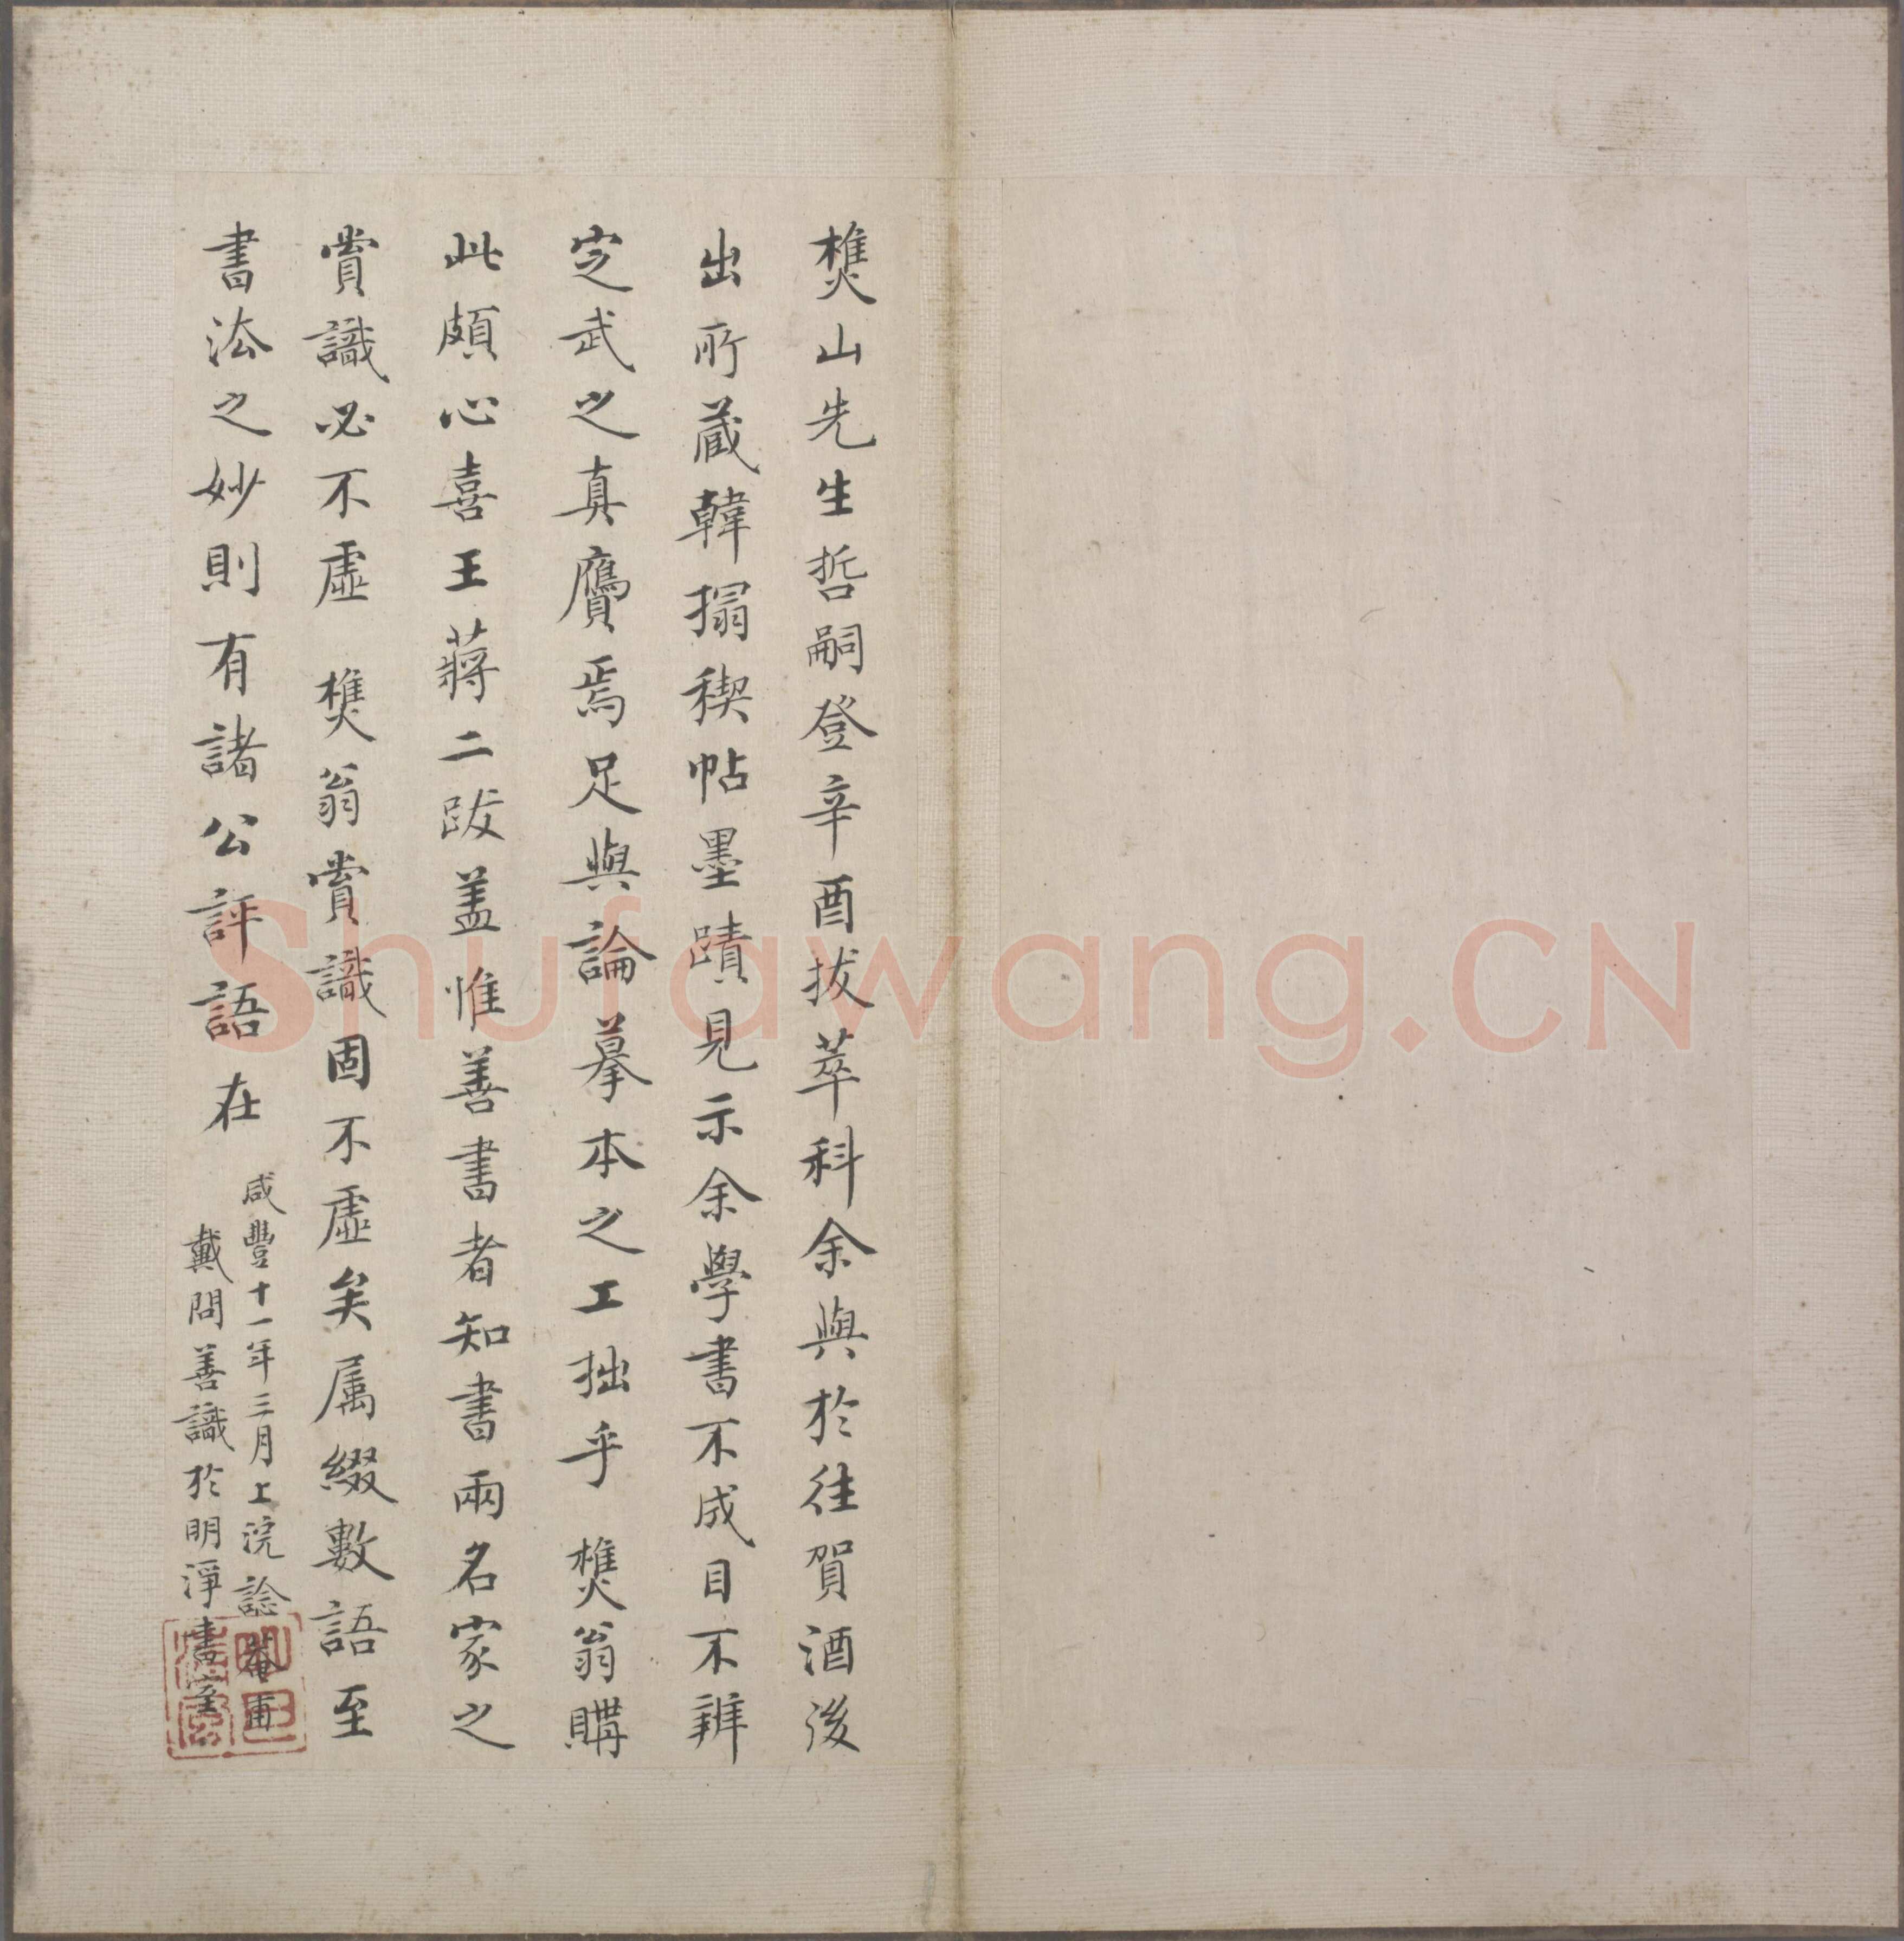 樵山先生哲嗣登辛酉拔萃科余與於往賀酒後
出所藏韓搨稧帖墨蹟見示余學書不成目不辨
定武之真贗焉足與論摹本之工拙乎 樵翁購
此頗心喜王蔣二跋盖惟善書者知書兩名家之
賞識必不虛 樵翁賞識固不虛矣属綴數語至
書法之妙則有諸公評語在
咸豐十一年三月上浣諗菴甫
戴問善識於明淨書室
Shufawang.CN